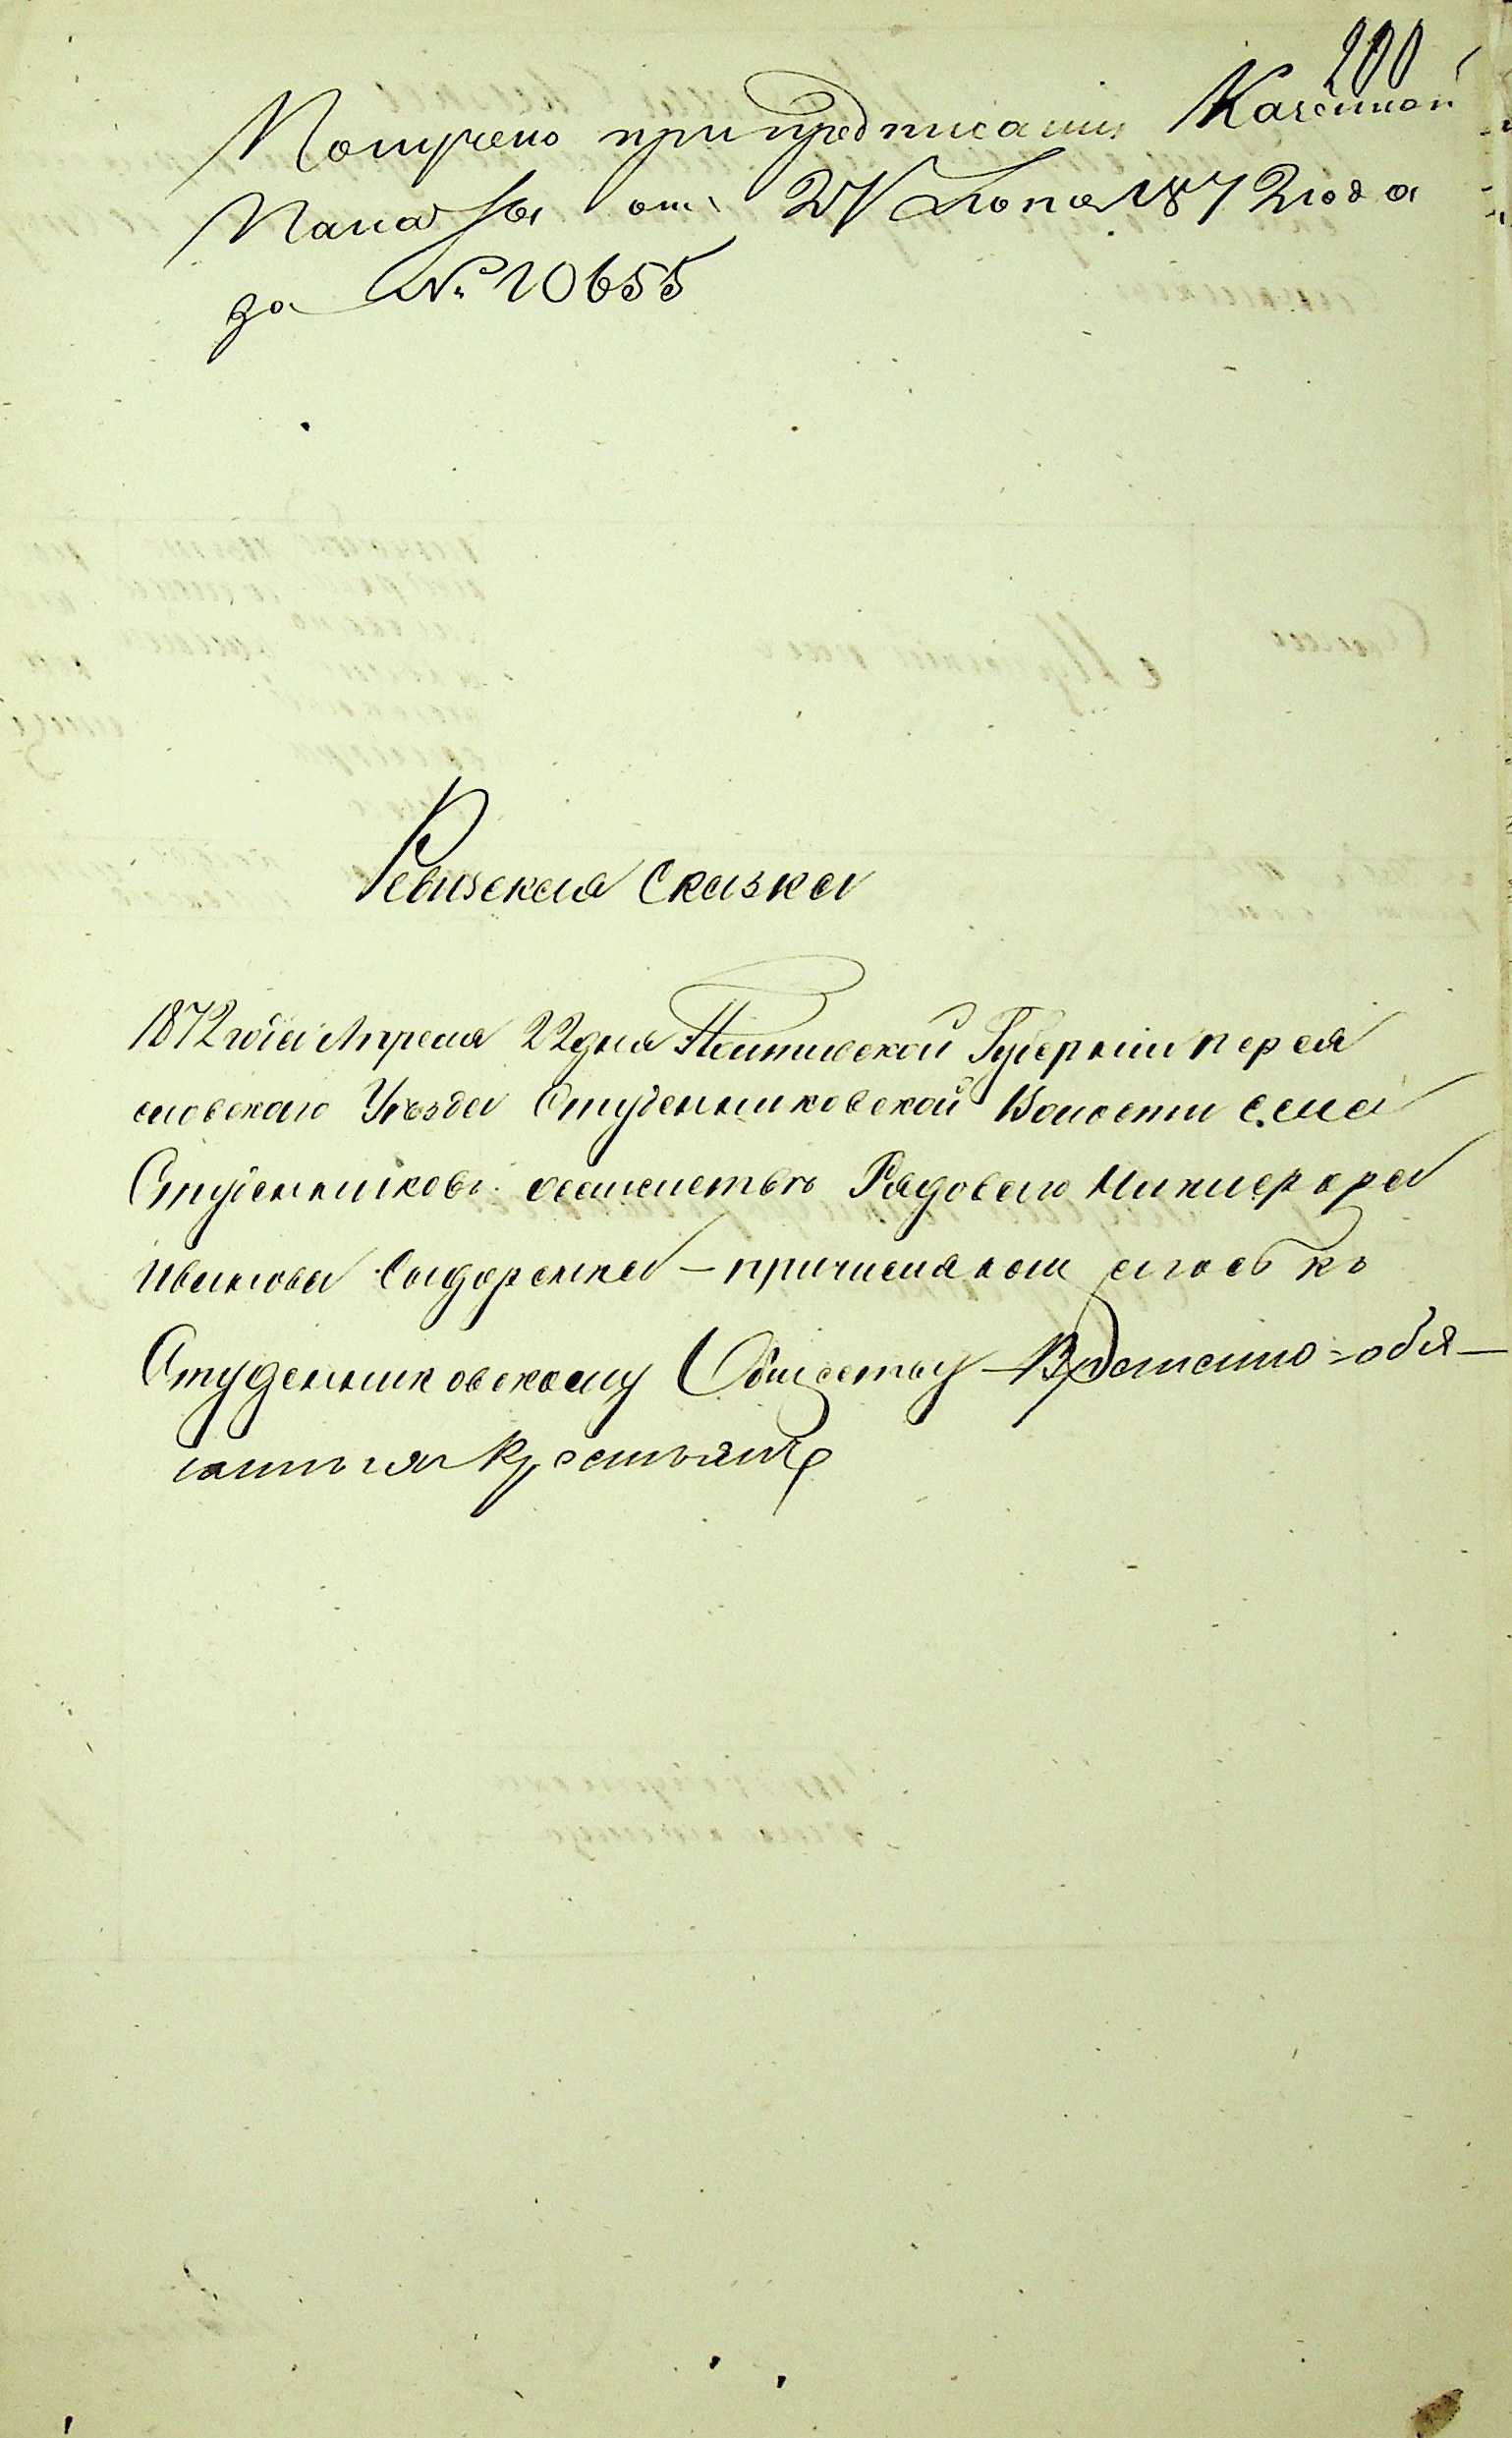 200
Получено при предписании Казенной
Палаты отъ 27 Июня 1872 года
за № 10655
Ревизская сказка
1872 года Апреля 22 дня Полтавской Губерніи перея
славскаго Уѣзда Студенниковской Волости села
Студенниковъ семействѣ Рядоваго Никифора
Иванова Сидоренка – причисляемагось къ
Студенниковскому Обществу Временно-обя-
занныхъ Крестьянъ